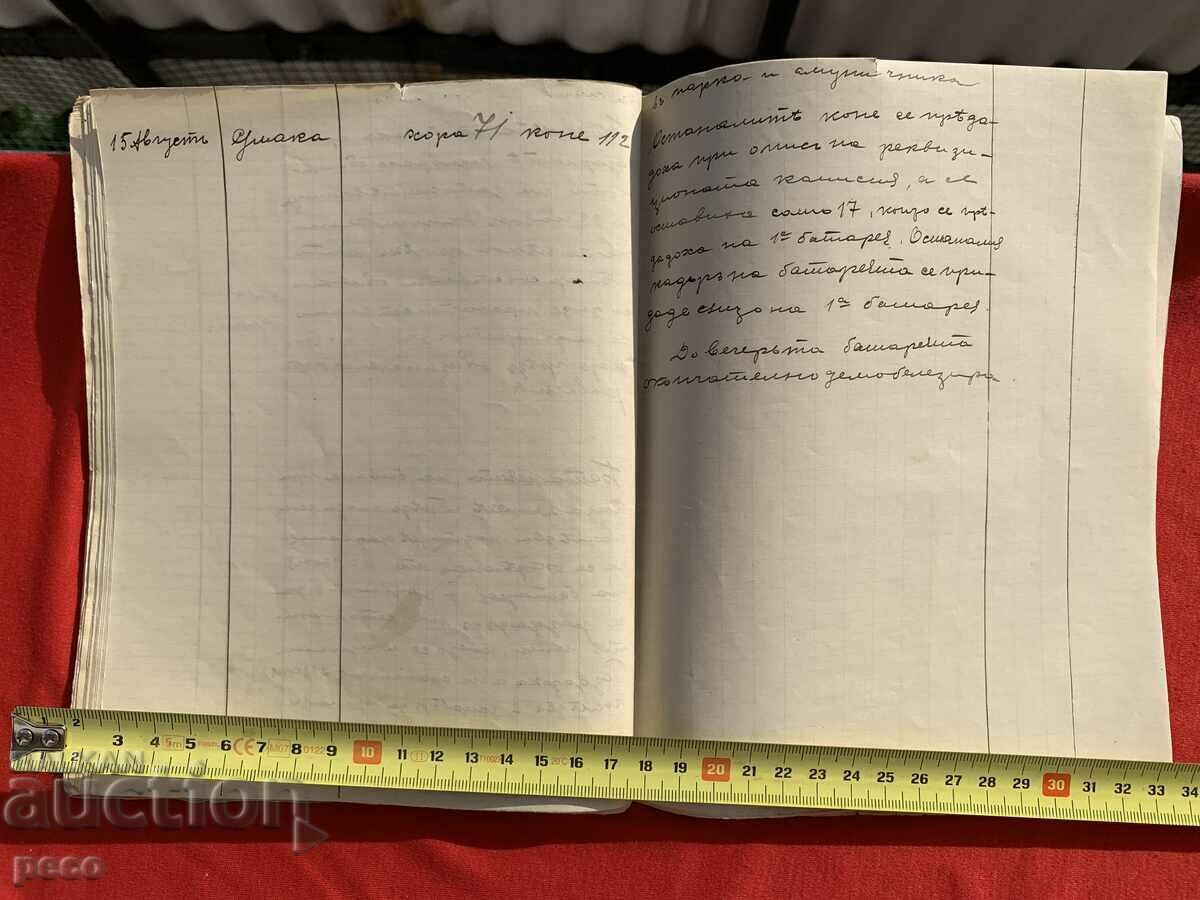 15 Августъ
хора 71 коне 112
въ парка и амуничника
Останалитѣ коне се прѣда-
доха при описъ на реквизи-
ционата камисия, а се
оставиха само 17, които се прѣ-
дадоха на 1ва батарея. Останалия
кадъръ на батареята се при-
даде на 1ва батарея.
До вечерьта батареята
окончателно демобелезира.
1 2 3 4 5 6 7 8 9 10 11 12 13 14 15 16 17 18 19 20 21 22 23 24 25 26 27 28 29 30 31 32 33 34
5m CE M07 0122 20°C
auction
peco